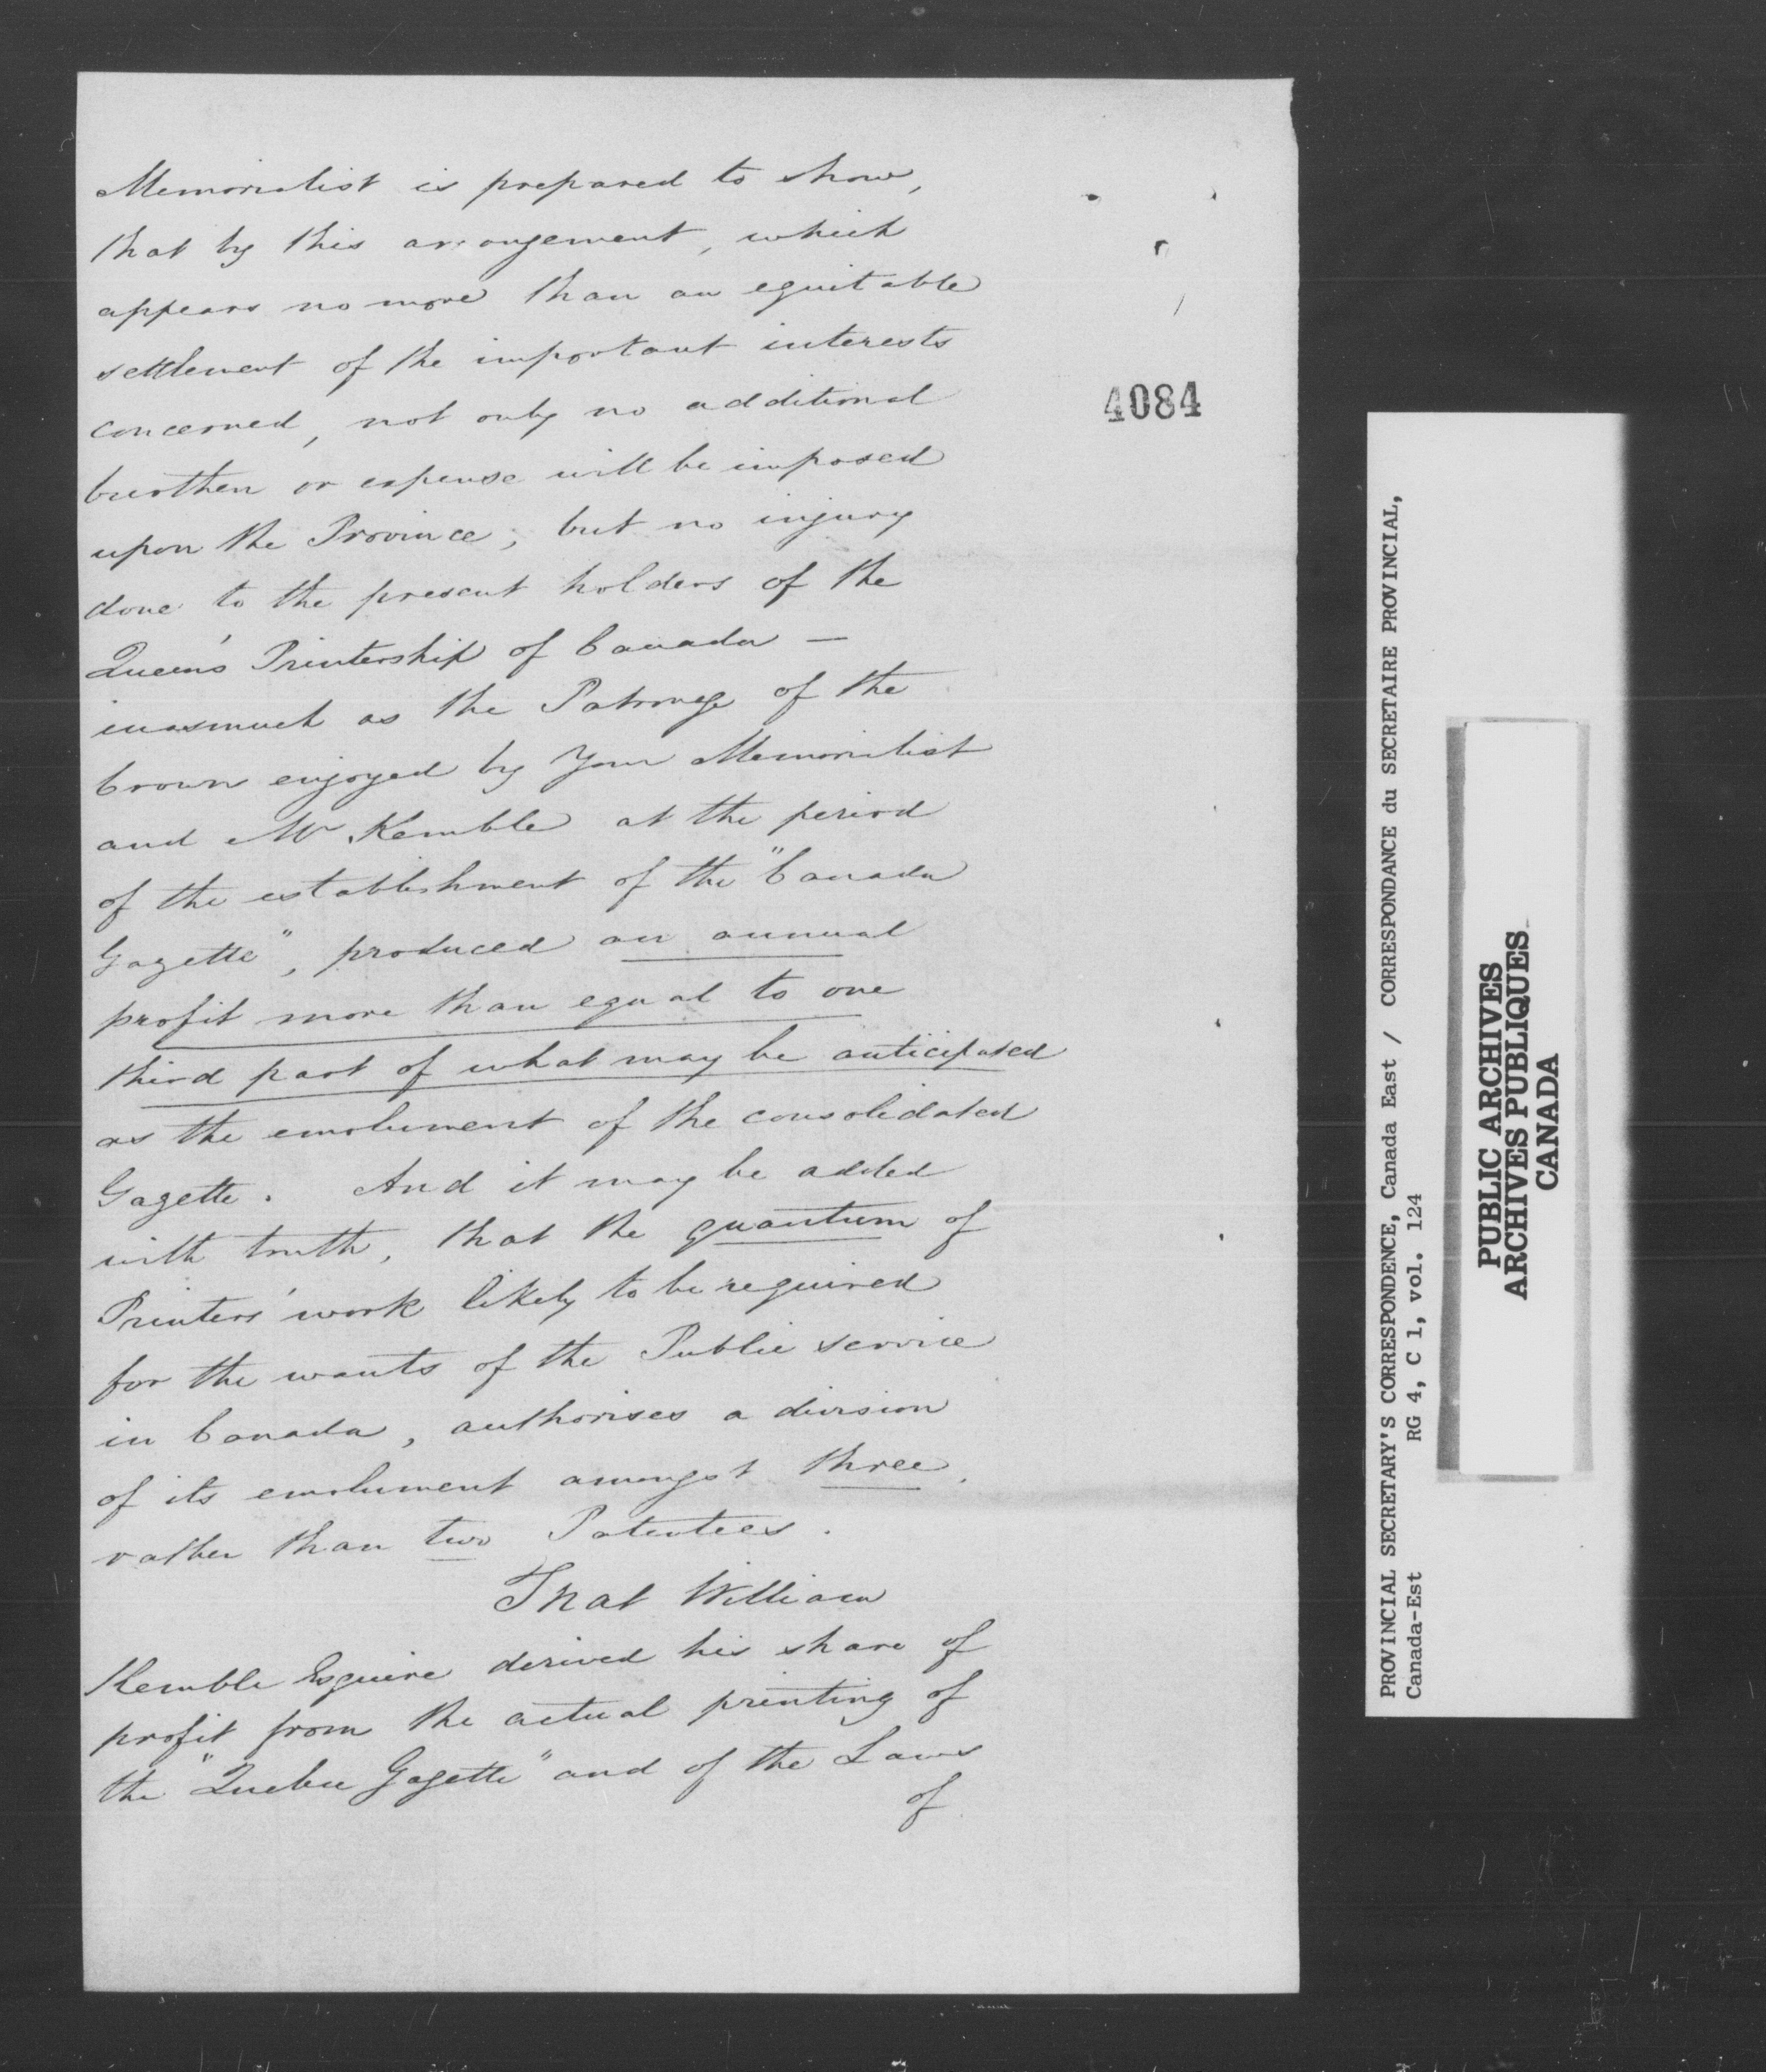 Memorialist is prepared to show,
that by this arrangement, which
appears no more than an equitable
settlement of the important interests
concerned, not only no additional
burthen or expense will be imposed
upon the Province, but no injury
done to the present holders of the
Queen's Printership of Canada —
inasmuch as the Patronage of the
Crown enjoyed by Your Memorialist
and Mr Kemble at the period
of the establishment of the "Canada
Gazette", produced an annual
profit more than equal to one
third part of what may be anticipated
as the emolument of the consolidated
Gazette. And it may be added
with truth, that the quantum of
Printers' work likely to be required
for the wants of the Public service
in Canada, authorises a division
of its emolument amongst three,
rather than two Patentees.
That William
Kemble Esquire derived his share of
profit from the actual printing of
the "Quebec Gazette" and of the Laws
of
4084
PROVINCIAL SECRETARY'S CORRESPONDENCE, Canada East / CORRESPONDANCE du SECRETAIRE PROVINCIAL,
Canada-Est RG 4, C 1, vol. 124
PUBLIC ARCHIVES
ARCHIVES PUBLIQUES
CANADA